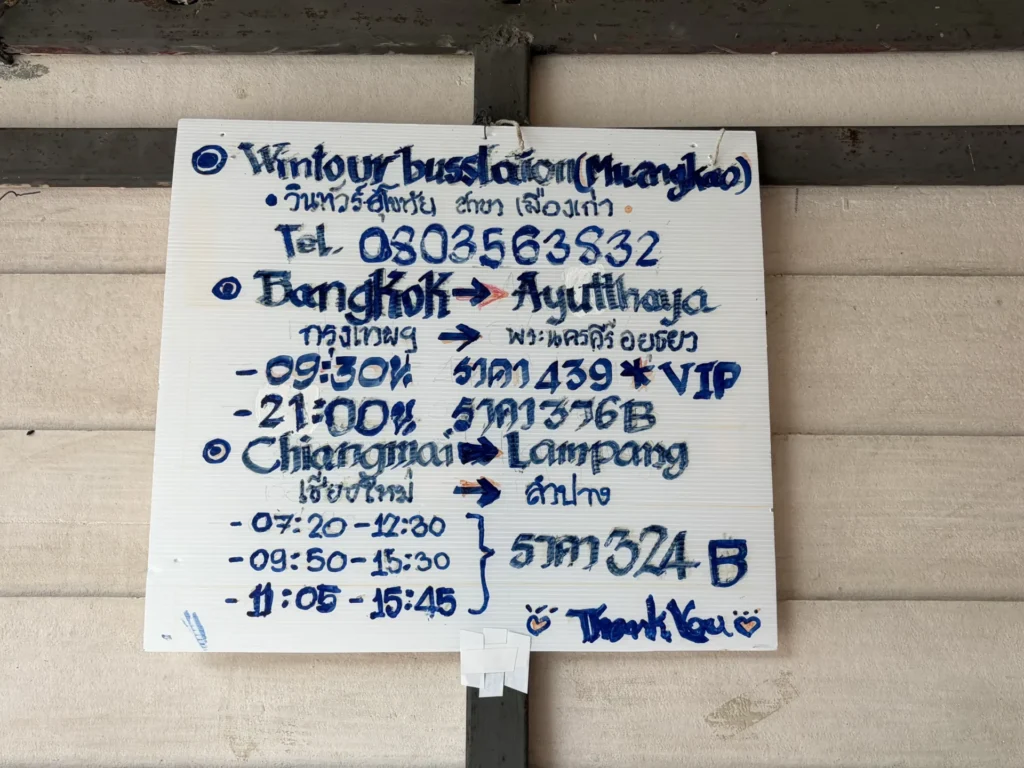 Wintour busstation(Muangkao)
• วินทัวร์สุโขทัย สาขา เมืองเก่า •
Tel. 0803563832
Bangkok → Ayutthaya
กรุงเทพฯ → พระนครศรีอยุธยา
- 09:30น ราคา 439 * VIP
- 21:00น ราคา 376B
Chiangmai → Lampang
เชียงใหม่ → ลำปาง
- 07:20 - 12:30
- 09:50 - 15:30
- 11:05 - 15:45
ราคา 324 B
Thank You